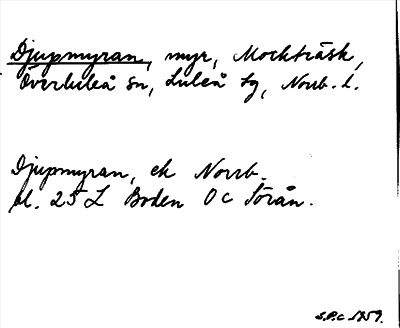 Djupmyran, myr, Mockträsk,
Överluleå sn, Luleå tg, Norrb. l.
Djupmyran, ek Norrb.
bl. 25 L Boden Oc Sörån.
S.P.C. 1959.